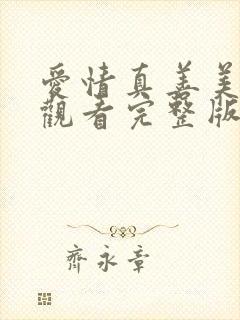 愛情真善美
觀看完整版
齊永章